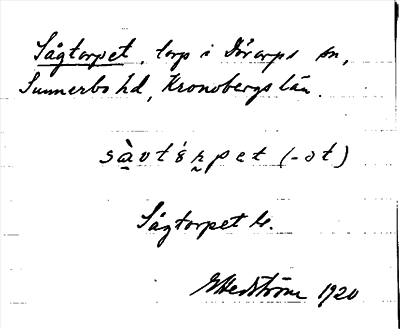 Sågtorpet, torp i Dörarps sn,
Sunnerbo hd, Kronobergs län.
sàvtórpet (-ot)
Sågtorpet kr.
G Hedström 1920